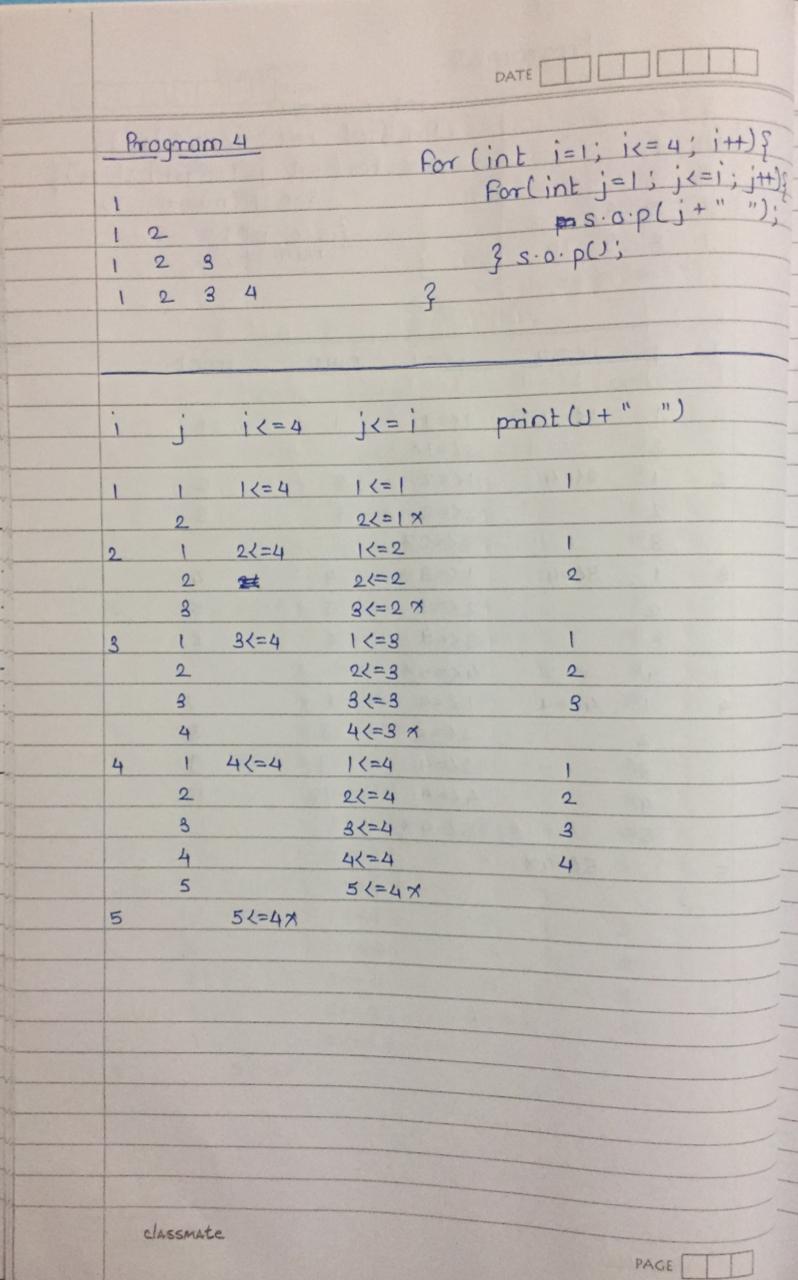 DATE
Program 4
for (int i=1; i<=4; i++){
for(int j=1; j<=i; j++){
1
s.o.p(j+" ");
1 2
} s.o.p();
1 2 3
1 2 3 4
}
i j i<=4 j<=i print(j+" ")
1 1 1<=4 1<=1 1
2 2<=1 x
2 1 2<=4 1<=2 1
2 2<=2 2
3 3<=2 x
3 1 3<=4 1<=3 1
2 2<=3 2
3 3<=3 3
4 4<=3 x
4 1 4<=4 1<=4 1
2 2<=4 2
3 3<=4 3
4 4<=4 4
5 5<=4 x
5 5<=4 x
classmate
PAGE